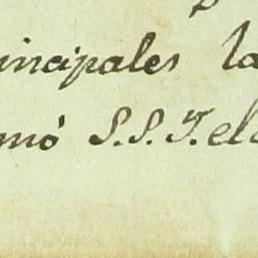 incipales la
mó S.S.Y. el